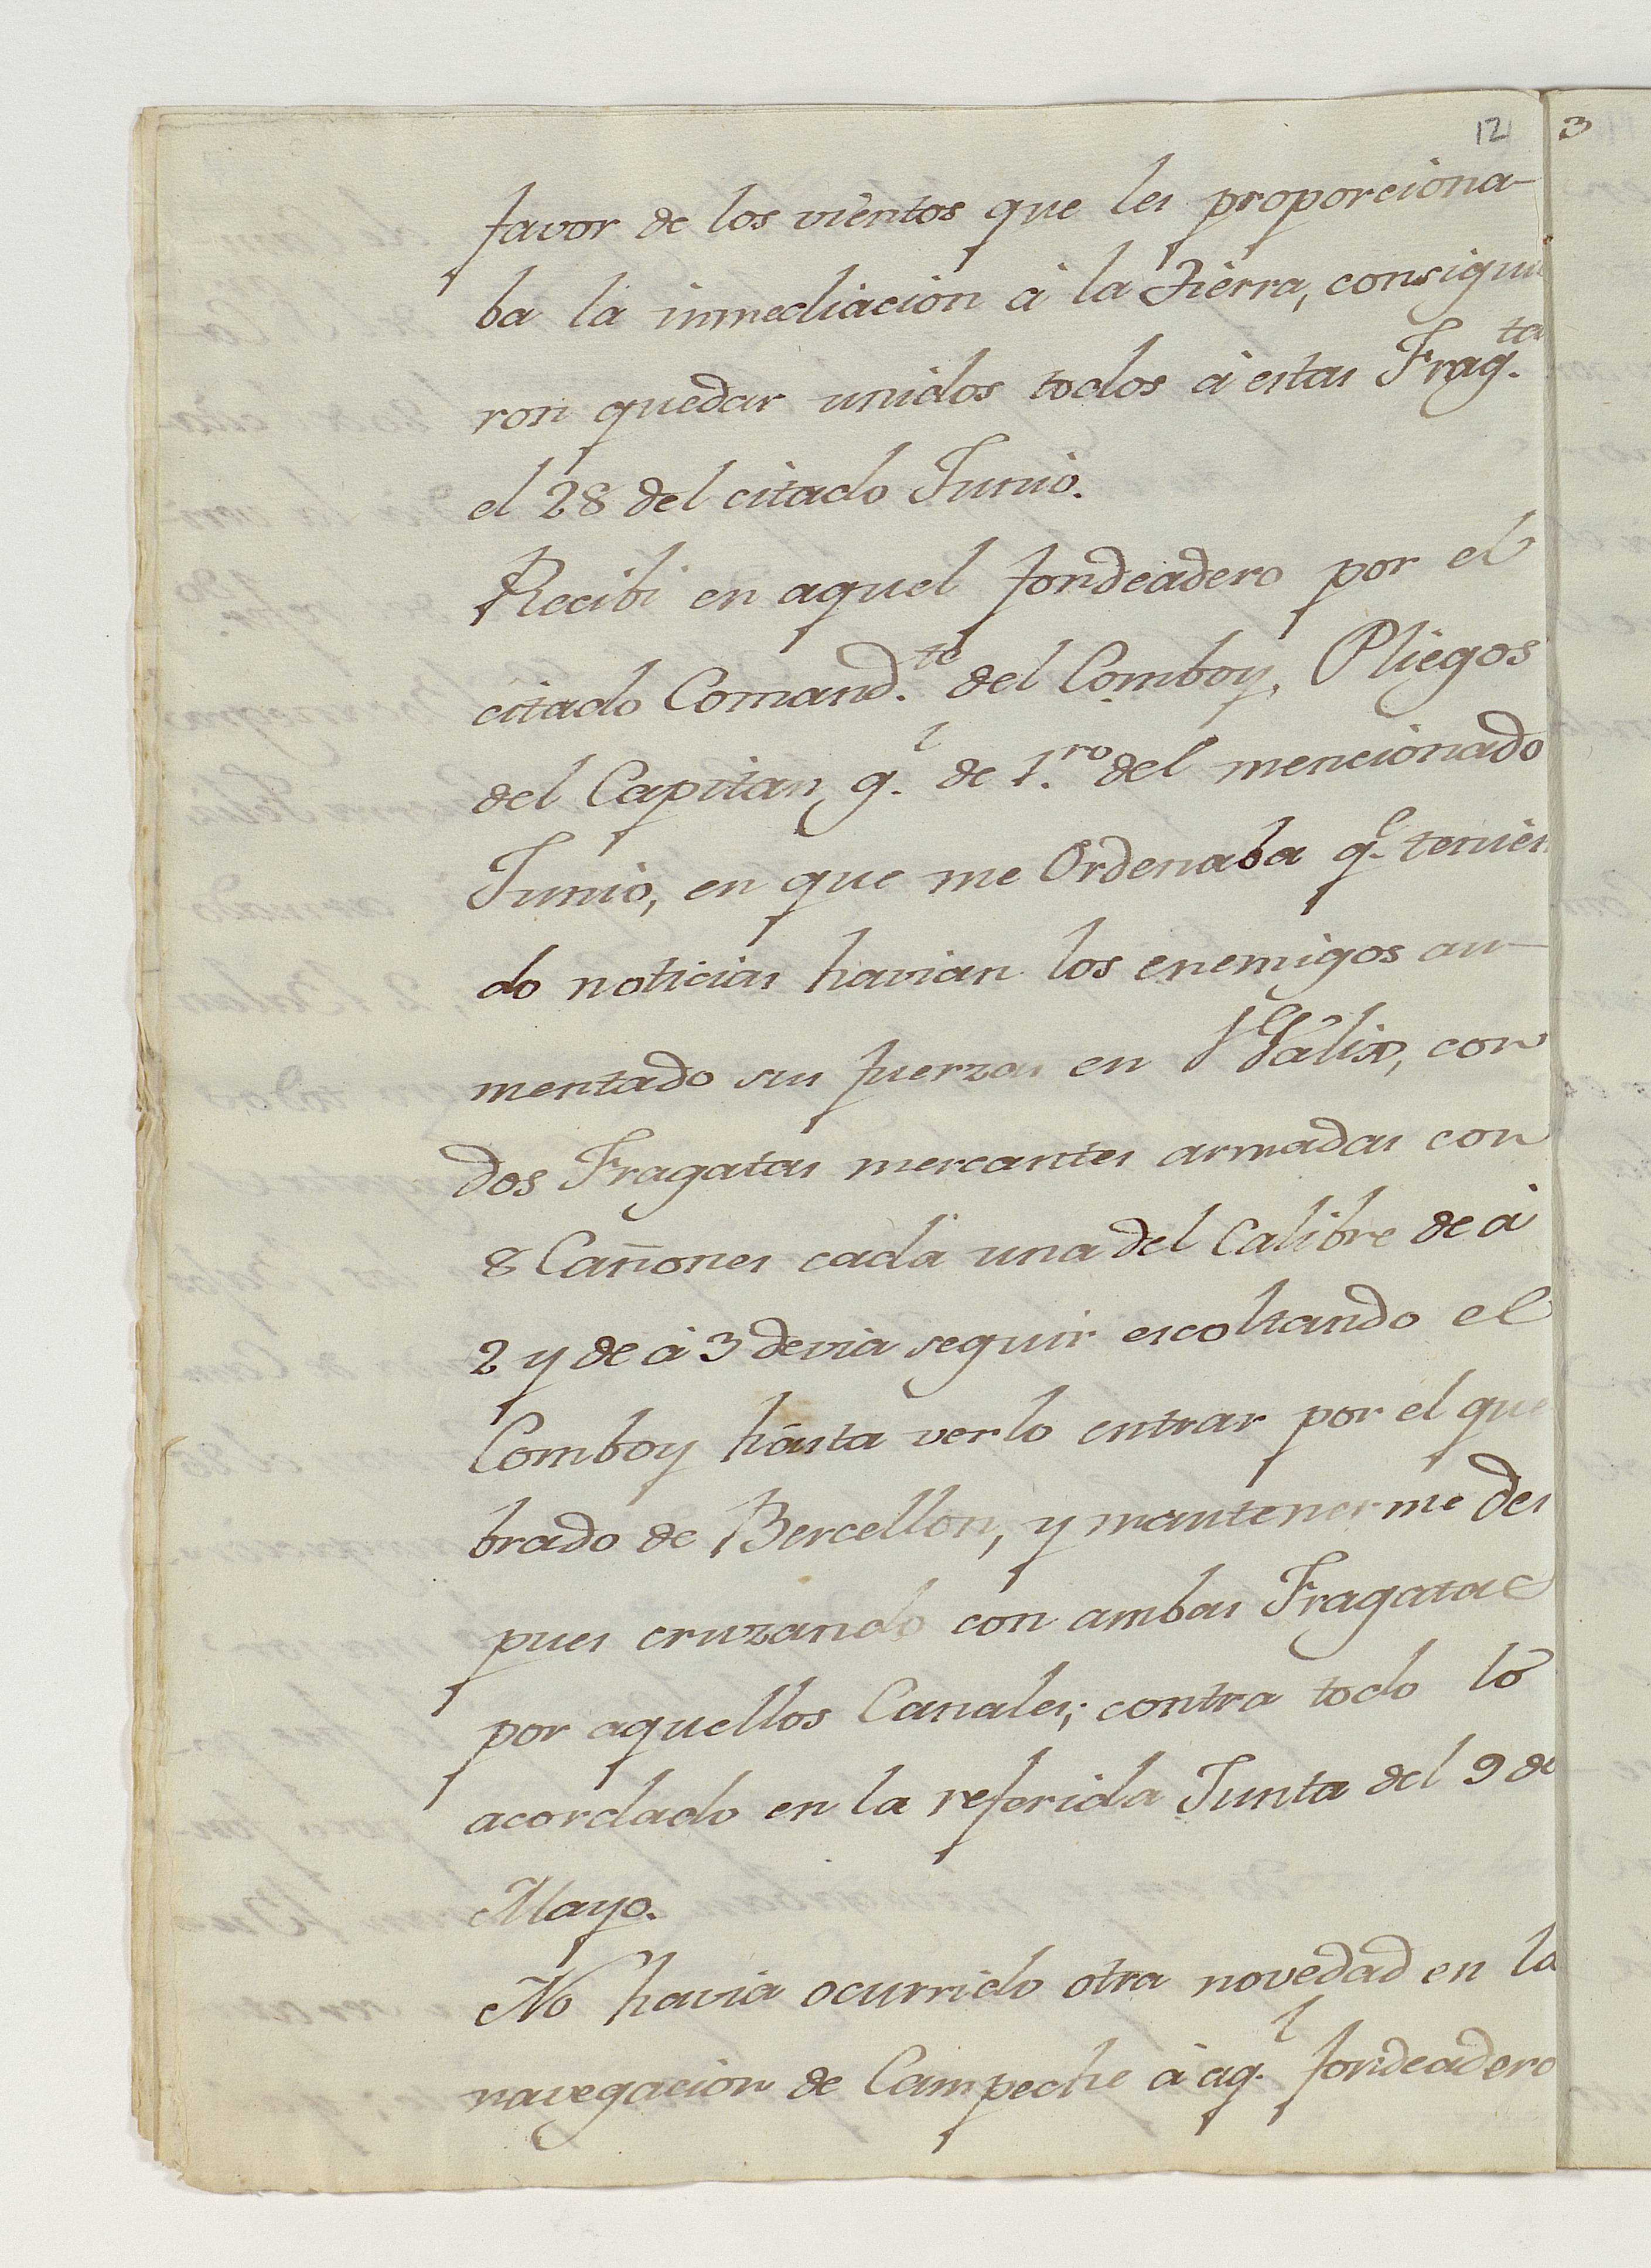 12 3
favor de los vientos que les proporciona-
ba la inmediacion à la Tierra, consiguie
ron quedar unidos todos à estas Frag.tas
el 28 del citado Junio.
Recibi en aquel fondeadero por el
citado Comand.te del Comboy, Pliegos
del Capitan g.l de 1.ro del mencionado
Junio, en que me Ordenaba q.e tenien
do noticias havian los enemigos au-
mentado sus fuerzas en Walix, con
dos Fragatas mercantes armadas con
8 Cañones cada una del Calibre de à
2 y de à 3 devia seguir escoltando el
Comboy hasta verlo entrar por el que
brado de Bercellon, y mantenerme des
pues cruzando con ambas Fragatas
por aquellos Canales; contra todo lo
acordado en la referida Junta del 9 de
Mayo.
No havia ocurrido otra novedad en la
navegacion de Campeche à aq.l fondeadero